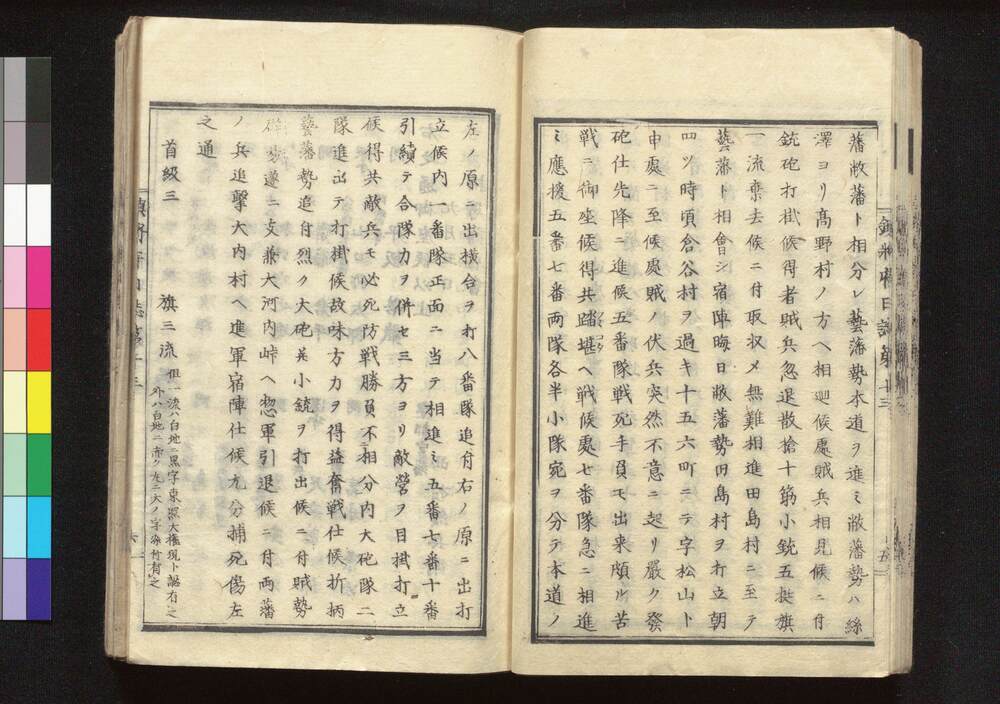 藩敝藩ト相分レ藝藩勢本道ヲ進ミ敝藩勢ハ絲
澤ヨリ高野村ノ方ヘ相廻候處賊兵相見候ニ付
銃砲打掛候得者賊兵忽退散拾十筋小銃五挺旗
一流棄去候ニ付取収メ無難相進田島村ニ至テ
藝藩ト相會シ宿陣晦日敝藩勢田島村ヲ打立朝
四ツ時頃倉谷村ヲ過キ十五六町ニテ字松山ト
申處ニ至候處賊ノ伏兵突然不意ニ起リ嚴ク發
砲仕先降ニ進候五番隊戦死手負モ出来頗ル苦
戦ニ御座候得共踏堪ヘ戦候處七番隊急ニ相進
ミ應援五番七番両隊各半小隊宛ヲ分テ本道ノ
左ノ原ニ出横合ヲ打八番隊追付右ノ原ニ出打
立候内一番隊正面ニ当テ相進ミ五番七番十番
引續テ合隊力ヲ併セ三方ヨリ敵營ヲ目掛打立
候得共敵兵モ必死防戦勝負不相分内大砲隊ニ
隊進出テ打掛候故味方力ヲ得益奮戦仕候折柄
藝藩勢追付烈ク大砲并小銃ヲ打出候ニ付賊勢
遂ニ支兼大河内峠ヘ惣軍引退候ニ付両藩
ノ兵追撃大内村ヘ進軍宿陣仕候尤分捕死傷左
之通
首級三
旗三流
但一流ハ白地ニ黒字東照大権現ト認有之
外ハ白地ニ赤ク九ニ大ノ字染付有之